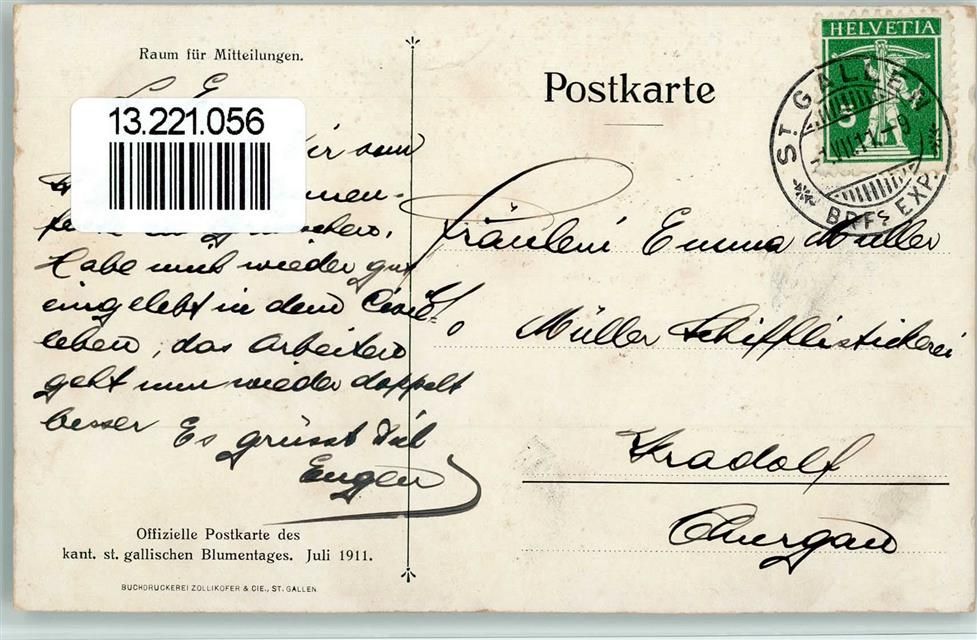 Raum für Mitteilungen.
13.221.056
Habe mich wieder gut
eingelebt in dem Civil-
leben, das Arbeiten
geht nun wieder doppelt
besser Es grüsst Dich
Eugen
Offizielle Postkarte des
kant. st. gallischen Blumentages. Juli 1911.
BUCHDRUCKEREI ZOLLIKOFER & CIE., ST. GALLEN
Postkarte
HELVETIA
5
ST. GALLEN
VII.11.-9
BRF. EXP.
Fräulein Emma Müller
Müller Schifflistickerei
Kradolf
Thurgau